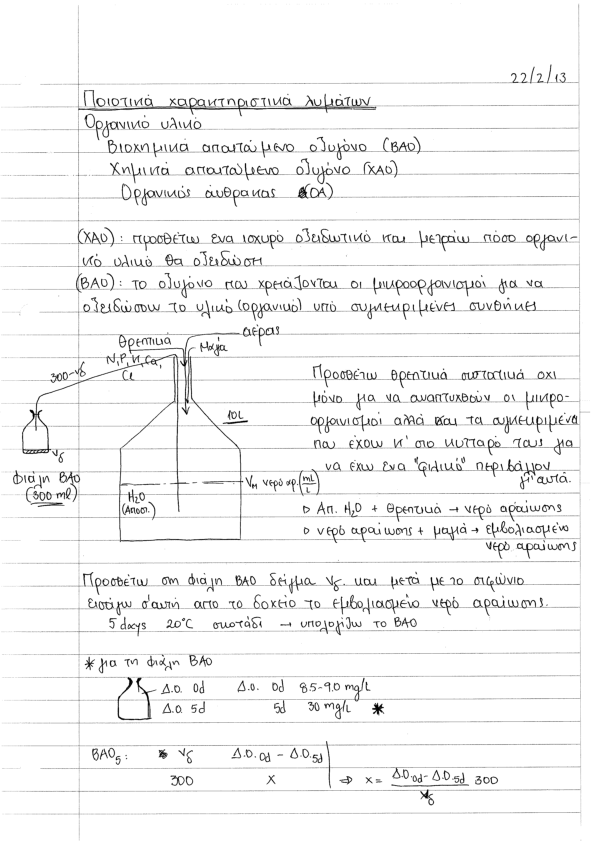 22/2/13
Ποιοτικά χαρακτηριστικά λυμάτων
Οργανικό υλικό
Βιοχημικά απαιτώμενο οξυγόνο (ΒΑΟ)
Χημικά απαιτώμενο οξυγόνο (ΧΑΟ)
Οργανικός άνθρακας (ΟΑ)
(ΧΑΟ): προσθέτω ενα ισχυρό οξειδωτικό και μετράω πόσο οργανι-
κό υλικό θα οξειδώσει
(ΒΑΟ): το οξυγόνο που χρειάζονται οι μικροοργανισμοί για να
οξειδώσουν το υλικό (οργανικό) υπό συγκεκριμένες συνθήκες
αέρας
Θρεπτικά
Μαγιά
N, P, K, Ca,
Cl
300-Vδ
10L
Vδ
φιάλη ΒΑΟ
(300 ml)
H2O
(Αποστ.)
VM νερό αρ. (mL/L)
Προσθέτω θρεπτικά συστατικά οχι
μόνο για να αναπτυχθούν οι μικρο-
οργανισμοί αλλά και τα συγκεκριμένα
που έχουν κ' στο κυτταρό τους για
να έχω ένα "φιλικό" περιβάλλον
γι' αυτά.
▷ Απ. H2O + θρεπτικά → νερό αραίωσης
▷ νερό αραίωσης + μαγιά → εμβολιασμένο
νερό αραίωσης
Προσθέτω στη φιάλη ΒΑΟ δείγμα Vδ. και μετά με το σιφώνιο
εισάγω σ'αυτή απο το δοχείο το εμβολιασμένο νερό αραίωσης.
5 days 20°C σκοτάδι → υπολογίζω το ΒΑΟ
* για τη φιάλη ΒΑΟ
Δ.Ο. 0d Δ.Ο. 0d 8.5-9.0 mg/L
Δ.Ο. 5d 5d 30 mg/L *
ΒΑΟ5: Vδ Δ.Ο.0d - Δ.Ο.5d
300 x ⇒ x = (Δ.Ο.0d - Δ.Ο.5d)/Vδ 300